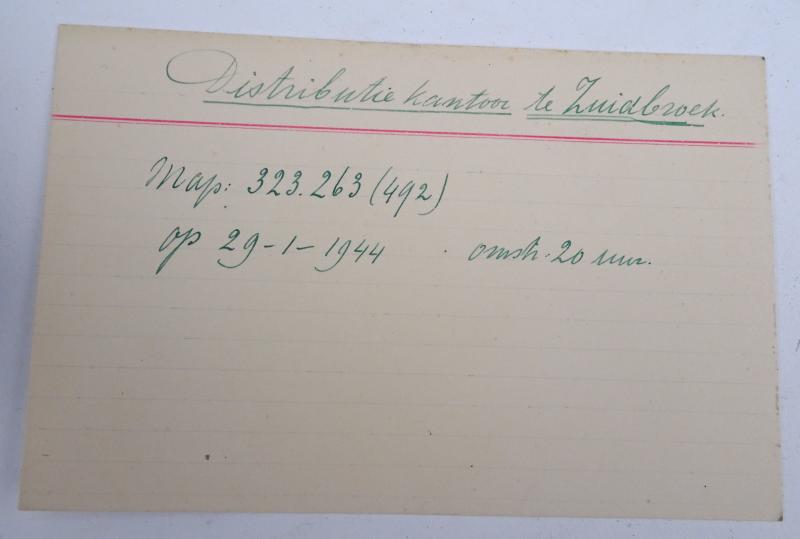 Distributie kantoor te Zuidbroek.
Map: 323.263 (492)
op 29-1-1944 omstr. 20 uur.